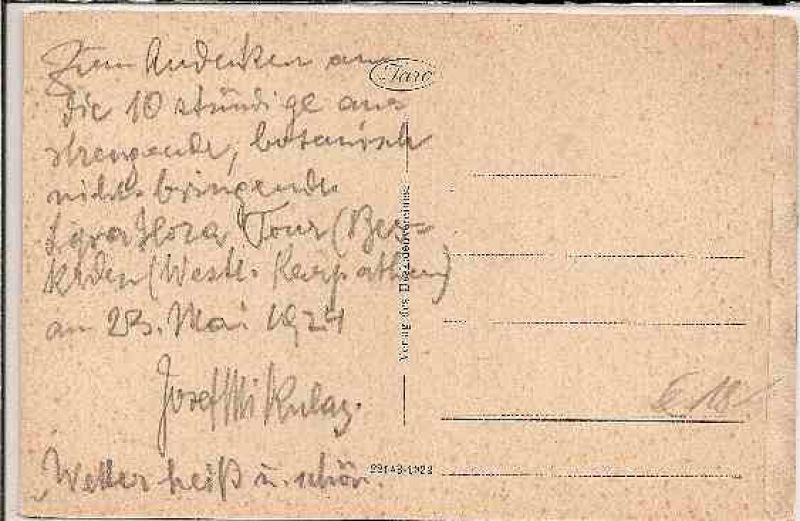 Zum Andenken an
die 10 stündige an-
strengende, botanisch
nichts bringende
Lysa Hora Tour (Bes-
kiden (Westl. Karpathen)
am 23. Mai 1924
Josef Mikulaz.
Wetter heiß u. schön.
Taro
Verlag des
29143-1923